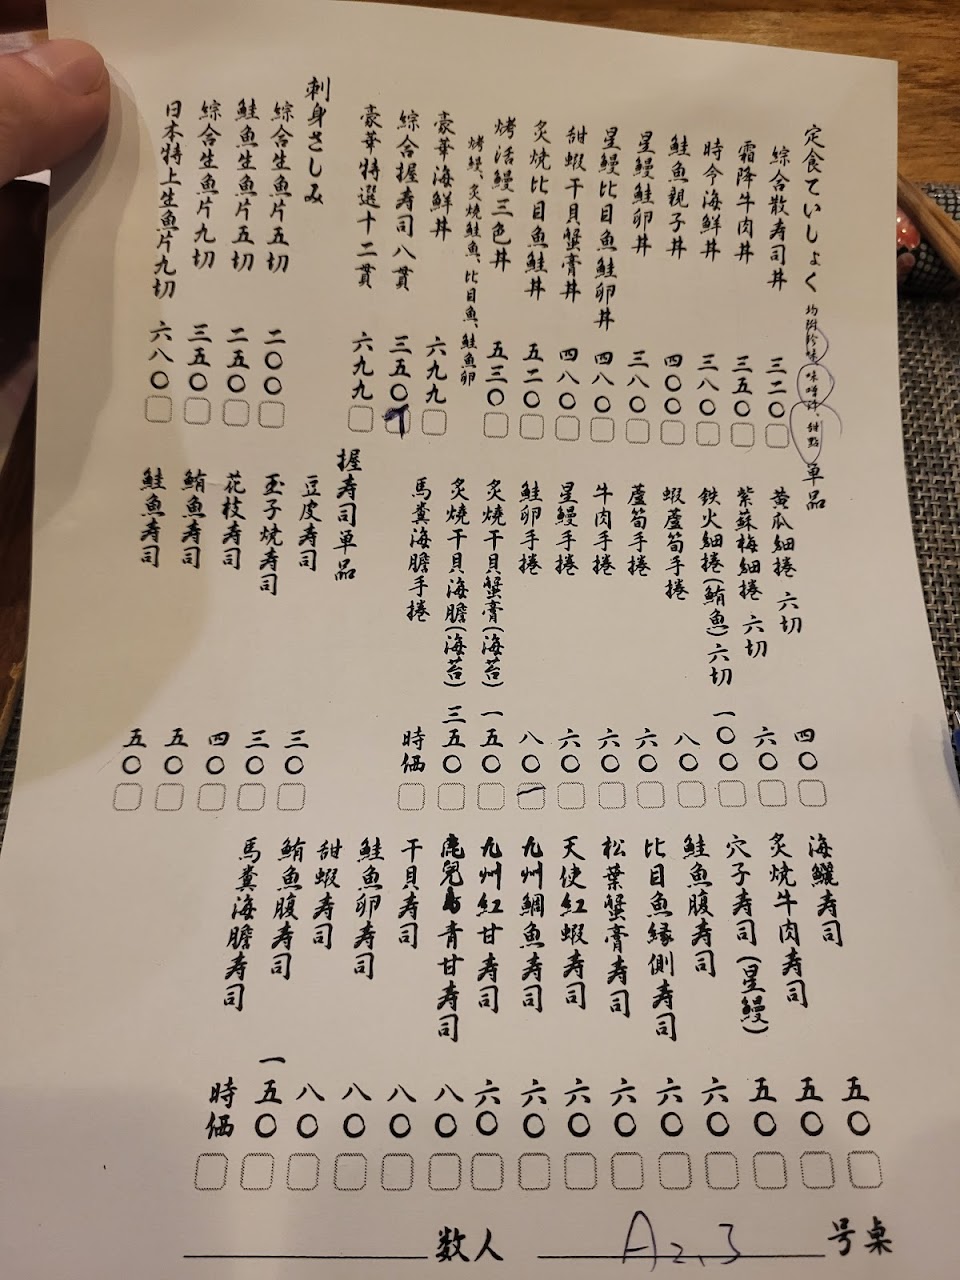 定食ていしょく 均附珍味、味噌汁、甜點
綜合散寿司丼 三二〇
霜降牛肉丼 三五〇
時令海鮮丼 三八〇
鮭魚親子丼 四〇〇
星鰻鮭卵丼 三八〇
星鰻比目魚鮭卵丼 四八〇
甜蝦干貝蟹膏丼 四八〇
炙燒比目魚鮭丼 五二〇
烤活鰻三色丼 五三〇
烤鰻、炙燒鮭魚、比目魚、鮭魚卵
豪華海鮮丼 六九九
綜合握寿司八貫 三五〇 1
豪華特選十二貫 六九九
刺身さしみ
綜合生魚片五切 二〇〇
鮭魚生魚片五切 二五〇
綜合生魚片九切 三五〇
日本特上生魚片九切 六八〇
單品
黄瓜細捲 六切 四〇
紫蘇梅細捲 六切 六〇
鉄火細捲(鮪魚)六切 一〇〇
蝦蘆筍手捲 八〇
蘆筍手捲 六〇
牛肉手捲 六〇
星鰻手捲 六〇
鮭卵手捲 八〇
炙燒干貝蟹膏(海苔) 一五〇
炙燒干貝海膽(海苔) 三五〇
馬糞海膽手捲 時価
握寿司單品
豆皮寿司 三〇
玉子燒寿司 三〇
花枝寿司 四〇
鮪魚寿司 五〇
鮭魚寿司 五〇
海鱺寿司 五〇
炙燒牛肉寿司 五〇
穴子寿司(星鰻) 五〇
鮭魚腹寿司 六〇
比目魚縁側寿司 六〇
松葉蟹膏寿司 六〇
天使紅蝦寿司 六〇
九州鯛魚寿司 六〇
九州紅甘寿司 六〇
鹿兒島青甘寿司 八〇
干貝寿司 八〇
鮭魚卵寿司 八〇
甜蝦寿司 八〇
鮪魚腹寿司 一五〇
馬糞海膽寿司 時価
数人 A2、3 号桌